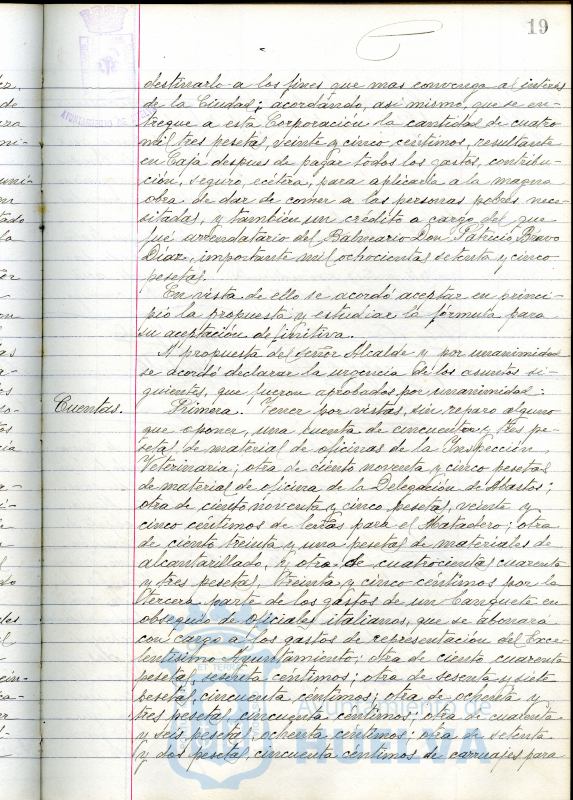 19
destinarlo a los fines que mas convenga al interés
de la Ciudad; acordándo, asi mismo, que se en-
tregue a esta Corporación la cantidad de cuatro
mil tres pesetas, veinte y cinco céntimos, resultante
en Caja despues de pagar todos los gastos, contribu-
ción, seguro, ecétera, para aplicarla a la magna
obra de dar de comer a las personas pobres nece-
sitadas, y también un crédito a cargo del que
fué arrendatario del Balneario Don Patricio Bravo
Diaz, importante mil ochocientas setenta y cinco
pesetas.
En vista de ello se acordó aceptar en princi-
pio la propuesta y estudiar la fórmula para
su aceptación definitiva.
A propuesta del señor Alcalde y por unanimidad
se acordó declarar la urgencia de los asuntos si-
guientes, que fueron aprobados por unanimidad:
Cuentas. Primera. Tener por vistas, sin reparo alguno
que oponer, una cuenta de cincuenta y tres pe-
setas de material de oficinas de la Inspección
Veterinaria; otra de ciento noventa y cinco pesetas
de material de oficina de la Delegación de Abastos;
otra de ciento noventa y cinco pesetas, veinte y
cinco céntimos de para el Matadero; otra
de ciento treinta y una pesetas de materiales de
alcantarillado, y otra de cuatrocientas cuarenta
y tres pesetas, treinta y cinco céntimos por la
tercera parte de los gastos de un banquete en
obsequio de oficiales italianos, que se abonará
con cargo a los gastos de representación del Exce-
lentísimo Ayuntamiento; otra de ciento cuarenta
pesetas, sesenta céntimos; otra de sesenta y siete
pesetas, cincuenta céntimos; otra de ochenta y
tres pesetas, cincuenta céntimos; otra de cuarenta
y seis pesetas, ochenta céntimos; otra de setenta
y dos pesetas, cincuenta céntimos de carruajes para
Ayuntamiento de
HUELVA